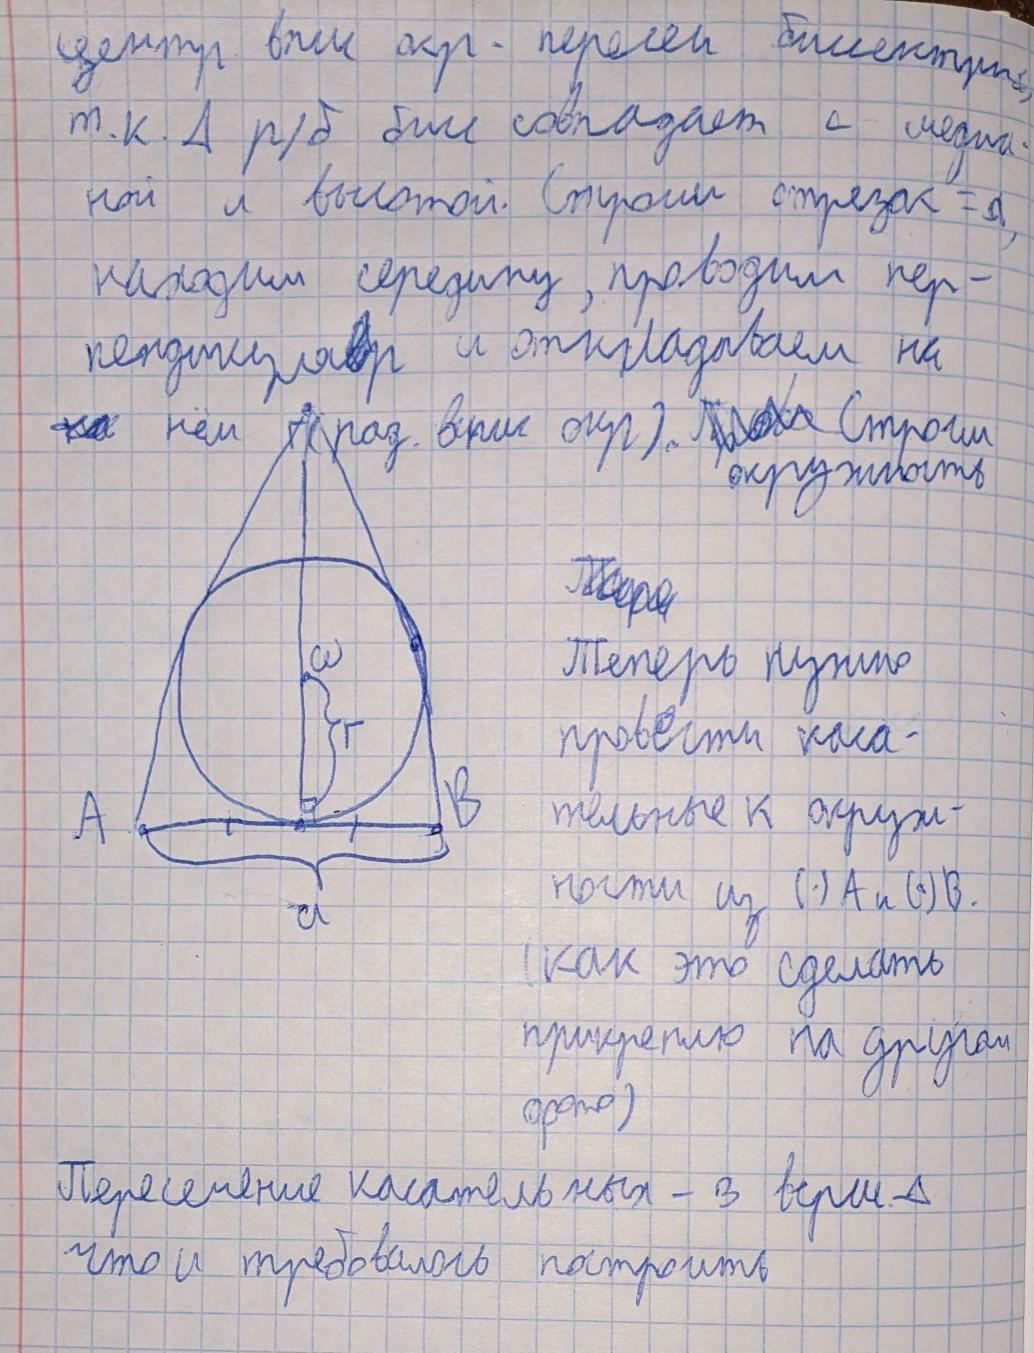 центр впис окр - пересеч биссектрис,
т.к. Δ р/б бис совпадает с медиа-
ной и высотой. Строим отрезок = a,
находим середину, проводим пер-
пендикуляр и откладываем на
нём r (рад. впис окр). Строим
окружность
ω
Теперь нужно
r
провести каса-
A
B
тельные к окруж-
ности из (·) A и (·) B.
a
(как это сделать
прикреплю на другом
фото)
Пересечение касательных - 3 верш. Δ
что и требовалось построить